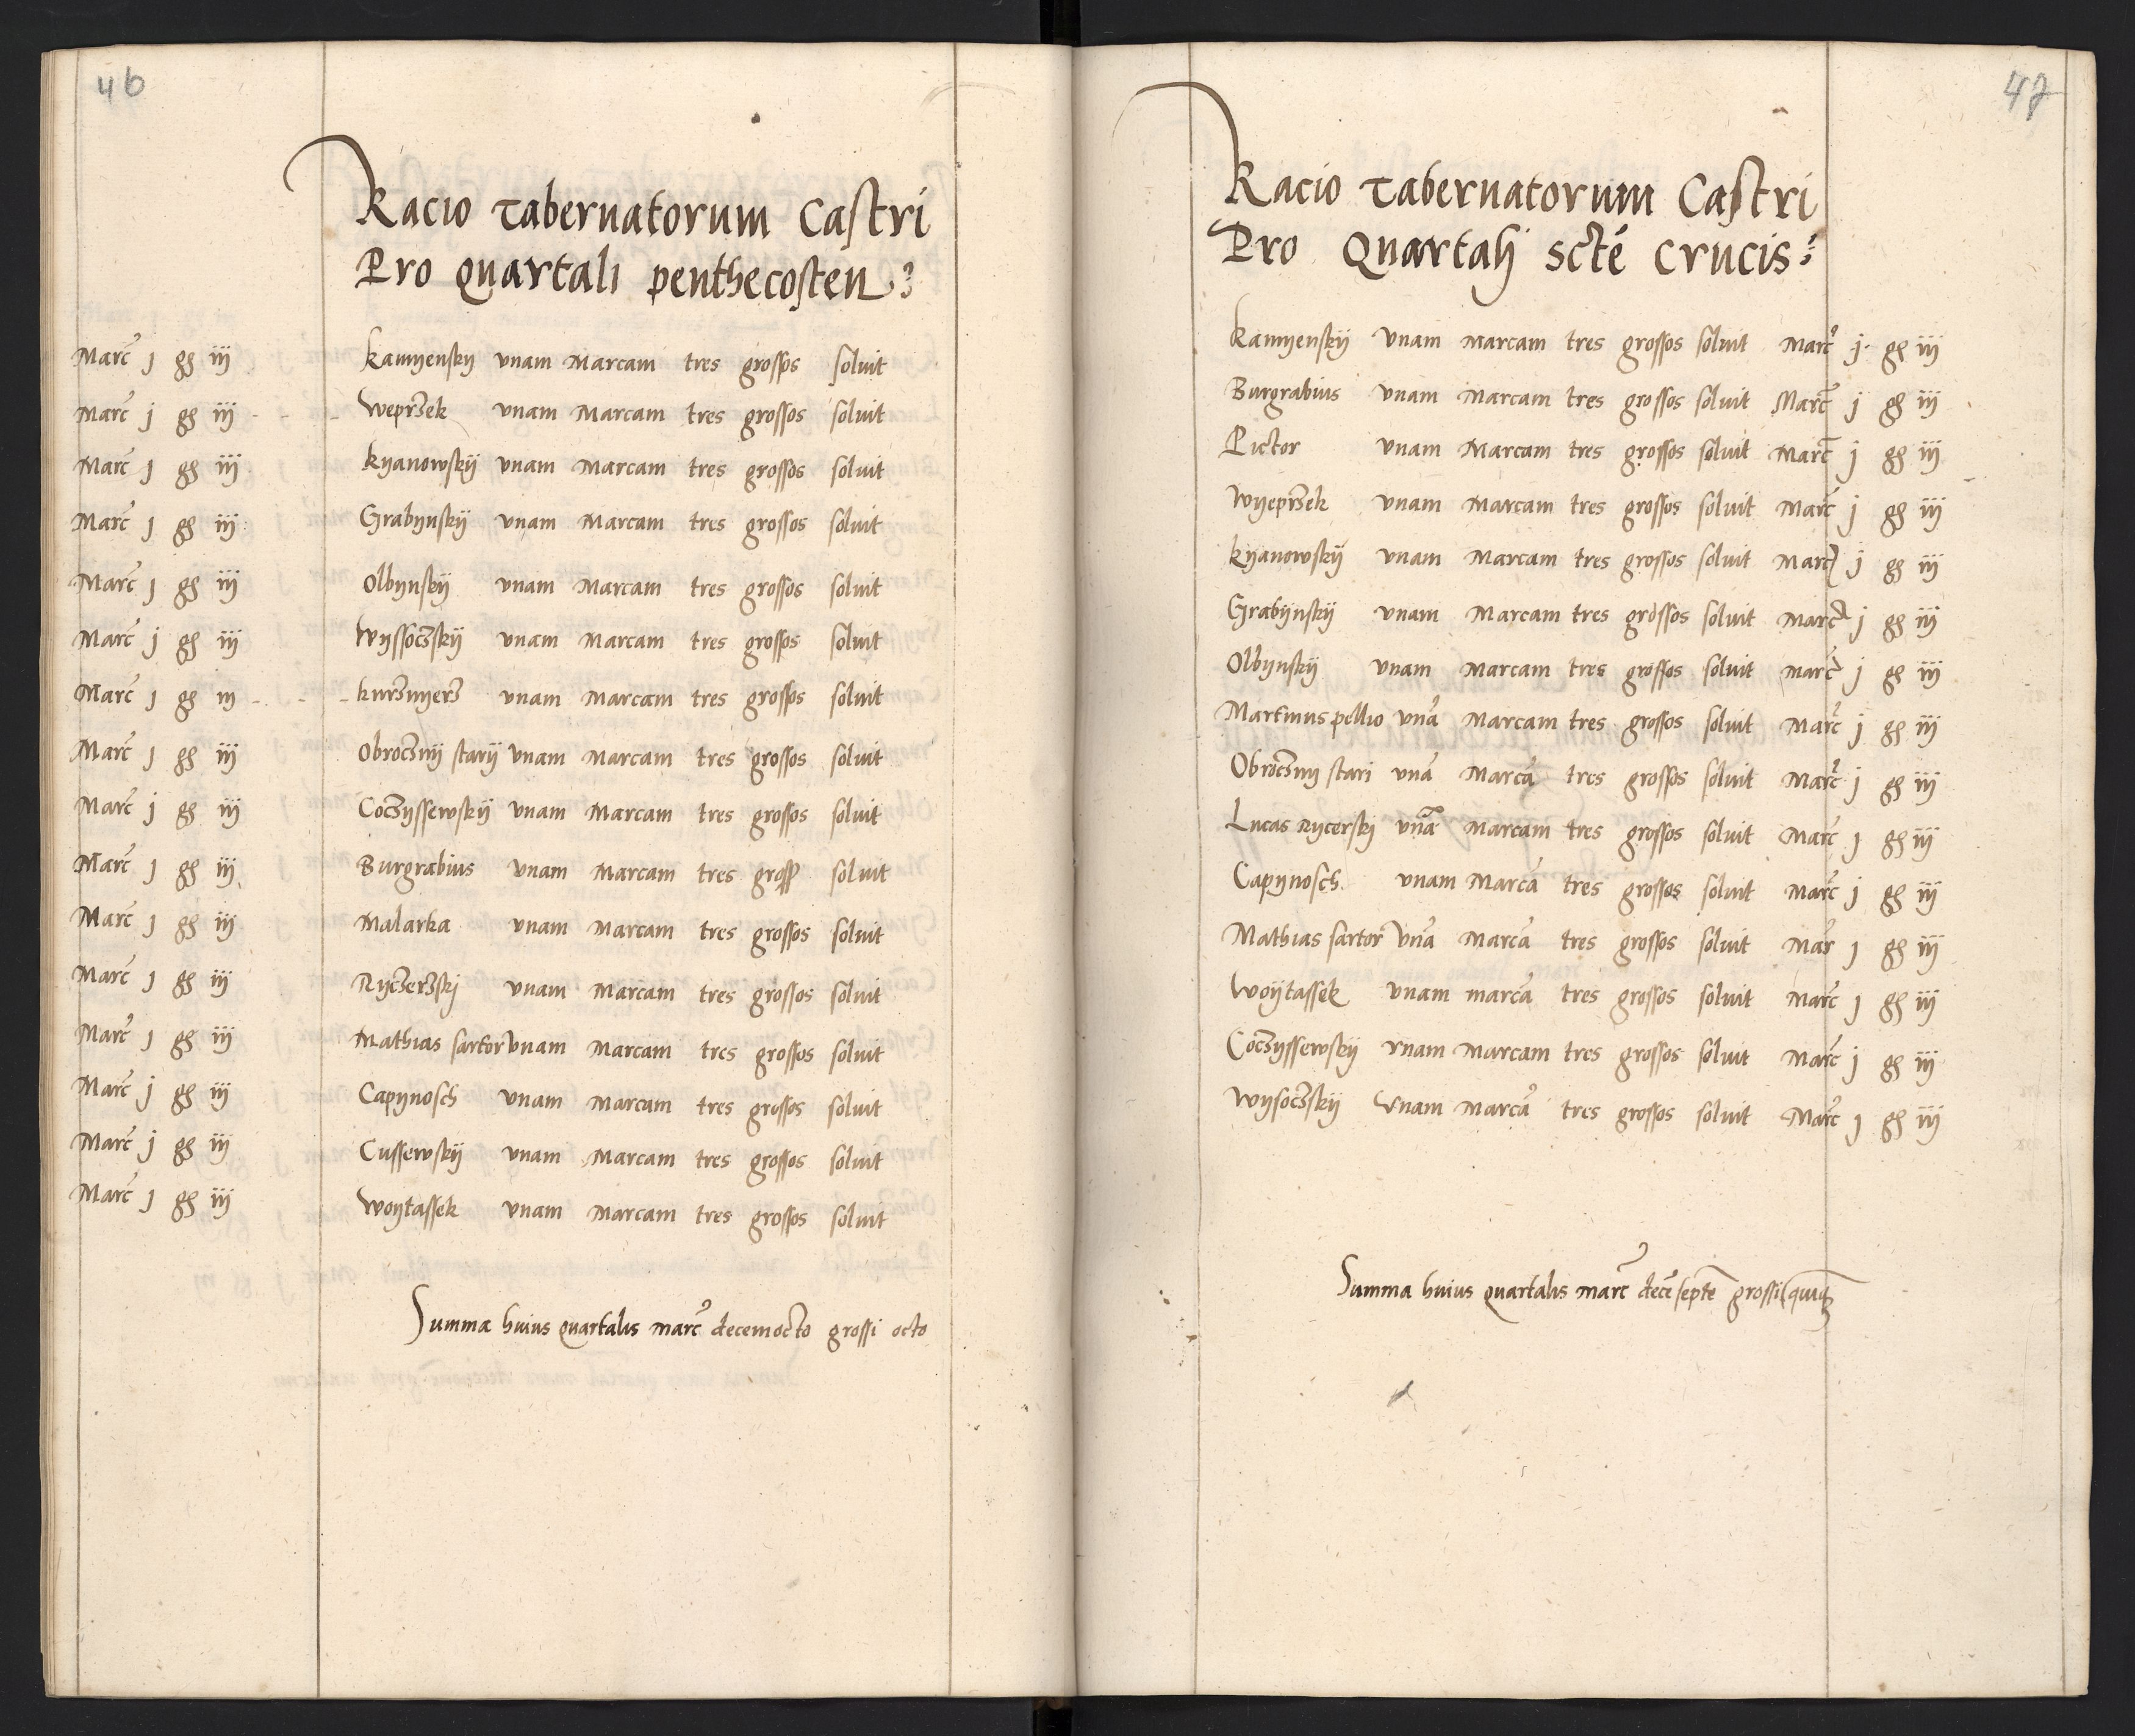 46
Racio tabernatorum Castri
Pro quartali penthecosten
Marc̄ j gʒ iij Kamyensky unam Marcam tres grossos soluit
Marc̄ j gʒ iij Weprzek unam Marcam tres grossos soluit
Marc̄ j gʒ iij kyanowskÿ unam Marcam tres grossos soluit
Marc̄ j gʒ iij Grabynskÿ unam Marcam tres grossos soluit
Marc̄ j gʒ iij Olbynskÿ unam Marcam tres grossos soluit
Marc̄ j gʒ iij Wyssoczskÿ unam Marcam tres grossos soluit
Marc̄ j gʒ iij kursmyerz unam Marcam tres grossos soluit
Marc̄ j gʒ iij Obroczny starÿ unam Marcam tres grossos soluit
Marc̄ j gʒ iij Coczyssewskÿ unam Marcam tres grossos soluit
Marc̄ j gʒ iij Burgrabius unam Marcam tres gross soluit
Marc̄ j gʒ iij Malarka unam Marcam tres grossos soluit
Marc̄ j gʒ iij Ryczerzskj unam Marcam tres grossos soluit
Marc̄ j gʒ iij Mathias sartor unam Marcam tres grossos soluit
Marc̄ j gʒ iij Capynosch unam Marcam tres grossos soluit
Marc̄ j gʒ iij Cussewskÿ unam Marcam tres grossos soluit
Marc̄ j gʒ iij Woytassek unam Marcam tres grossos soluit
Summa huius quartalis marc̄ decemocto grossi octo
47
Racio tabernatorum Castri
Pro Quartalj sctē crucis
Kamyenskÿ unam Marcam tres grossos soluit Marc̄ j gʒ iij
Burgrabius unam Marcam tres grossos soluit Marc̄ j gʒ iij
Pictor unam Marcam tres grossos soluit Marc̄ j gʒ iij
Wyeprzek unam Marcam tres grossos soluit Marc̄ j gʒ iij
kyanowskÿ unam Marcam tres grossos soluit Marc̄ j gʒ iij
Grabynskÿ unam Marcam tres grossos soluit Marc̄ j gʒ iij
Olbynskÿ unam Marcam tres grossos soluit Marc̄ j gʒ iij
Martinus pellio unā Marcam tres grossos soluit Marc̄ j gʒ iij
Obroczny stari unā Marcā tres grossos soluit Marc̄ j gʒ iij
Lucas Rycerskj unā Marcam tres grossos soluit Marc̄ j gʒ iij
Capynosch unam Marcā tres grossos soluit Marc̄ j gʒ iij
Mathias sartor unā Marcā tres grossos soluit Mar̄ j gʒ iij
Woÿtassek unam marcā tres grossos soluit Marc̄ j gʒ iij
Coczyssewskÿ unam Marcam tres grossos soluit Marc̄ j gʒ iij
Wysoczskÿ unam Marcā tres grossos soluit Marc̄ j gʒ iij
Summa huius quartalis marc̄ decē septē grossi quīqʒ